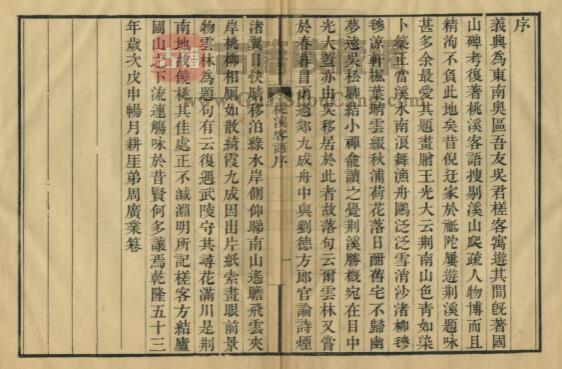 序
義興爲東南奧區吾友吳君槎客寓遊其間旣著國
山碑考復著桃溪客語搜剔溪山爬疏人物博而且
精洵不負此地矣昔倪迂家於祗陀屢遊荆溪題咏
甚多余最愛其題畫贈王光大云荆南山色青如染
卜築正當溪水南浪舞漁舟鷗泛泛雪消沙渚柳毿
毿涼軒楓葉聽雲綴秋浦荷花落日酣舊宅不歸幽
夢遠吳松聊結小禪龕讀之覺荆溪勝概宛在目中
光大蓋亦由吳移居於此者故落句云爾雲林又嘗
於春暮自南過郊九成舟中與劉德方郎官論詩煙
桃溪客語序
一
渚翼日快晴移泊綠水岸側仰聯南山遙瞻飛雲夾
岸桃柳相厠如散綺霞九成因出片紙索畫眼前景
物雲林為題句有云復遇武陵守其尋花滿川是荆
南地故饒桃其佳處正不減淵明所記槎客方結廬
國山之下流連觴咏於昔賢何多讓焉乾隆五十三
年歲次戊申暢月耕厓弟周廣業篹